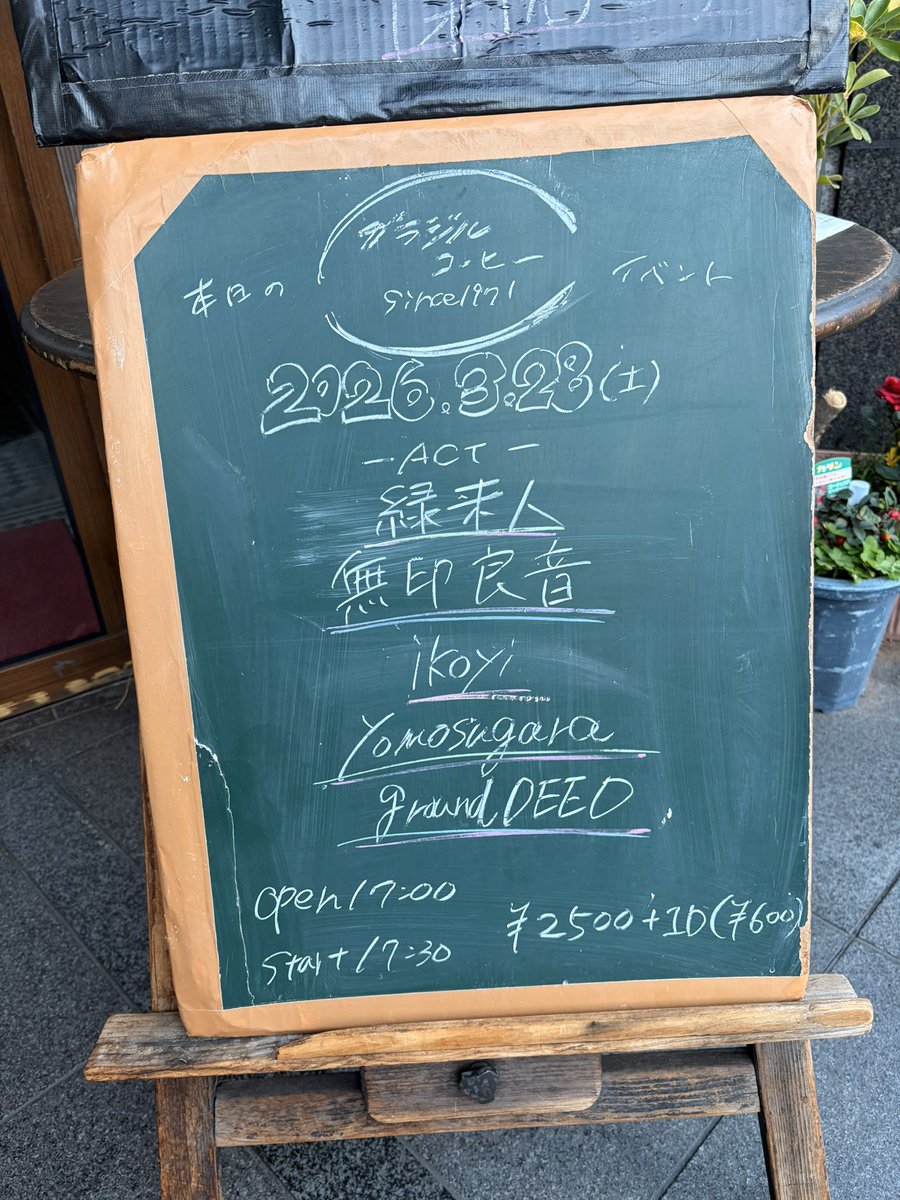 ブラジル
コーヒー
since1971
本日の
イベント
2026.3.28(土)
-ACT-
緑来人
無印良音
ikoyi
Yomosugara
groundDEED
open17:00
start17:30
¥2500+1D(¥600)